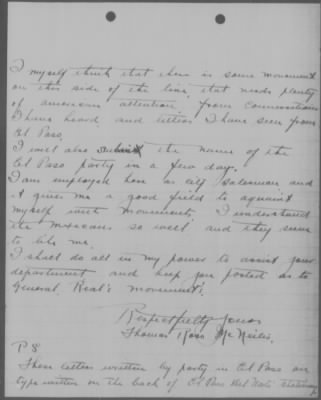 I myself think that there is some movement
on this side of the line that needs plenty
of american attention from conversations
I have heard and letters I have seen from
El Paso.
I will also submit the name of the
El Paso party in a few days.
I am employed here as salesman and
it gives me a good field to aquaint
myself with movements. I understand
the mexicans so well and they seem
to like me.
I shall do all in my power to assist your
department and keep you posted as to
General Real's movement.
Respectfully yours
Thomas Ross
P S
These letters written by party in El Paso are
type written on the back of El Paso Natl stationary